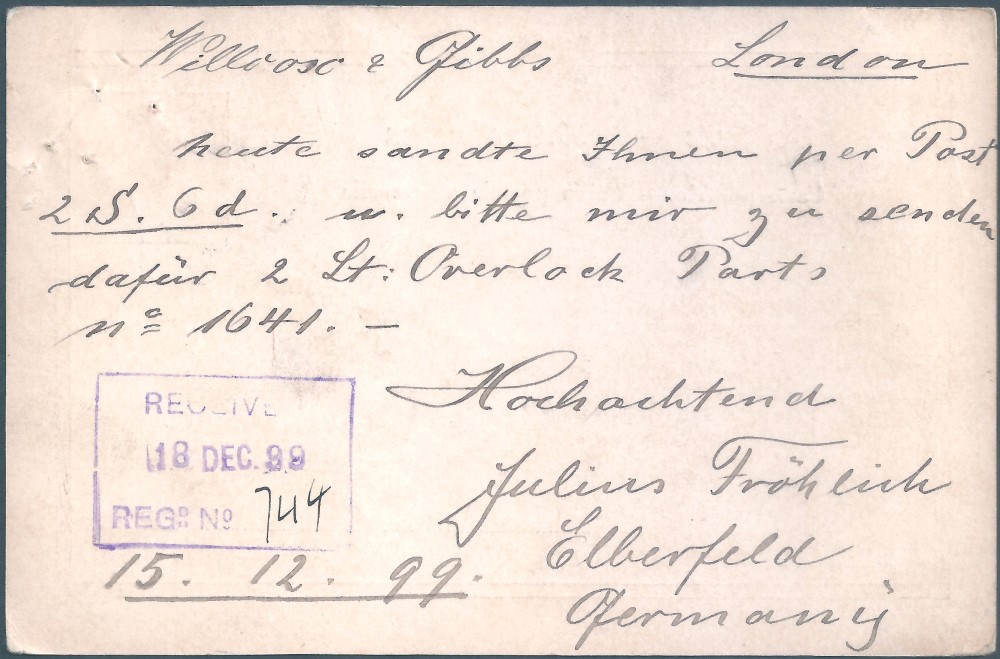 Willcox & Gibbs London
heute sandte Ihnen per Post
2 S. 6 d. u. bitte mir zu senden
dafür 2 St: Overlock Parts
No 1641. —
Hochachtend
Julius Fröhlich
Elberfeld
Germany
RECEIVE
18 DEC. 99
REGD. No. 744
15. 12. 99.